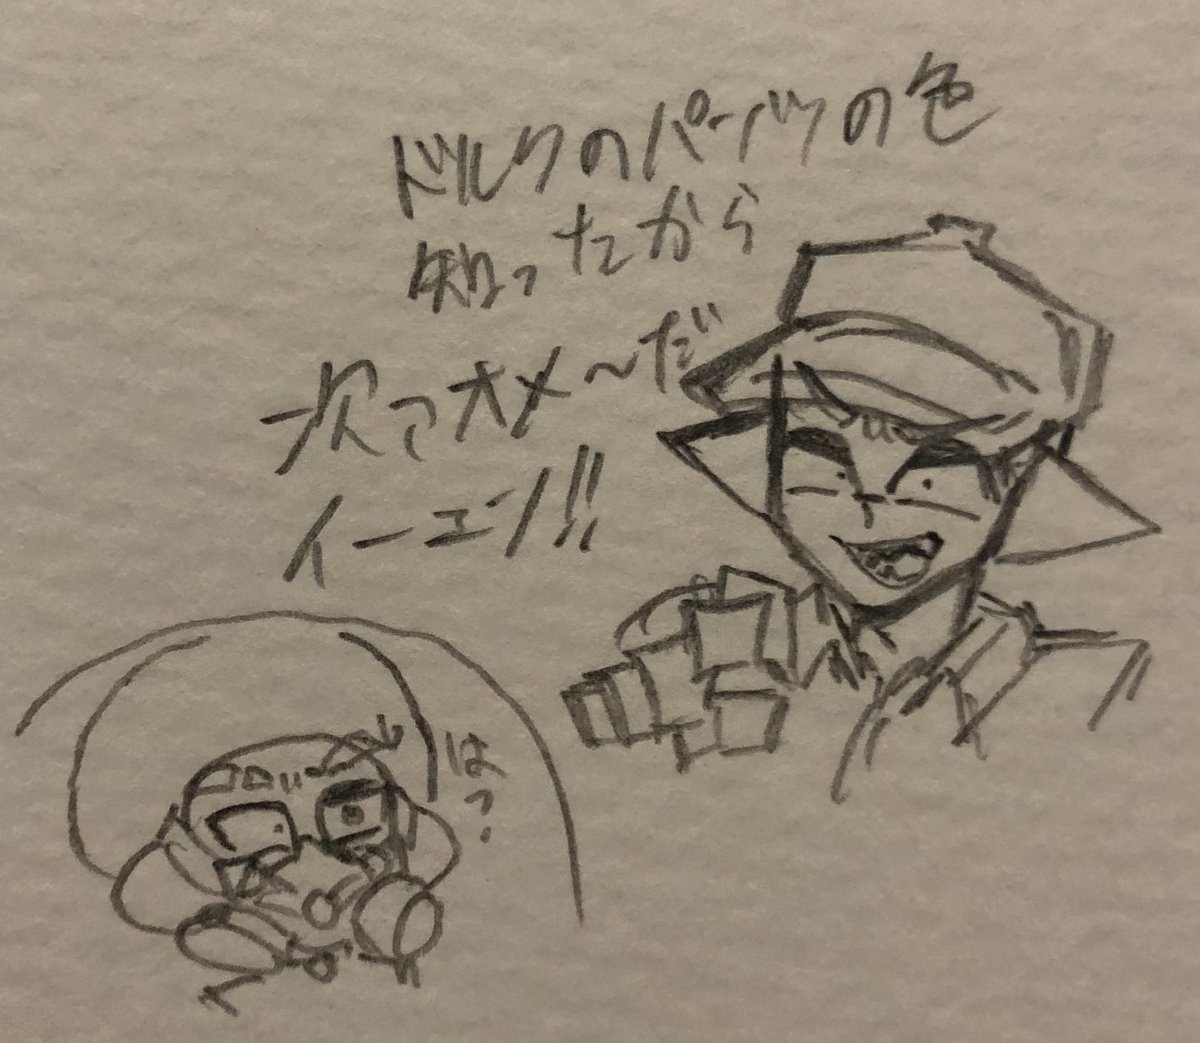 ドルクのパーツの色
知ったから
次はオメ〜だ
イーユン!!
は?